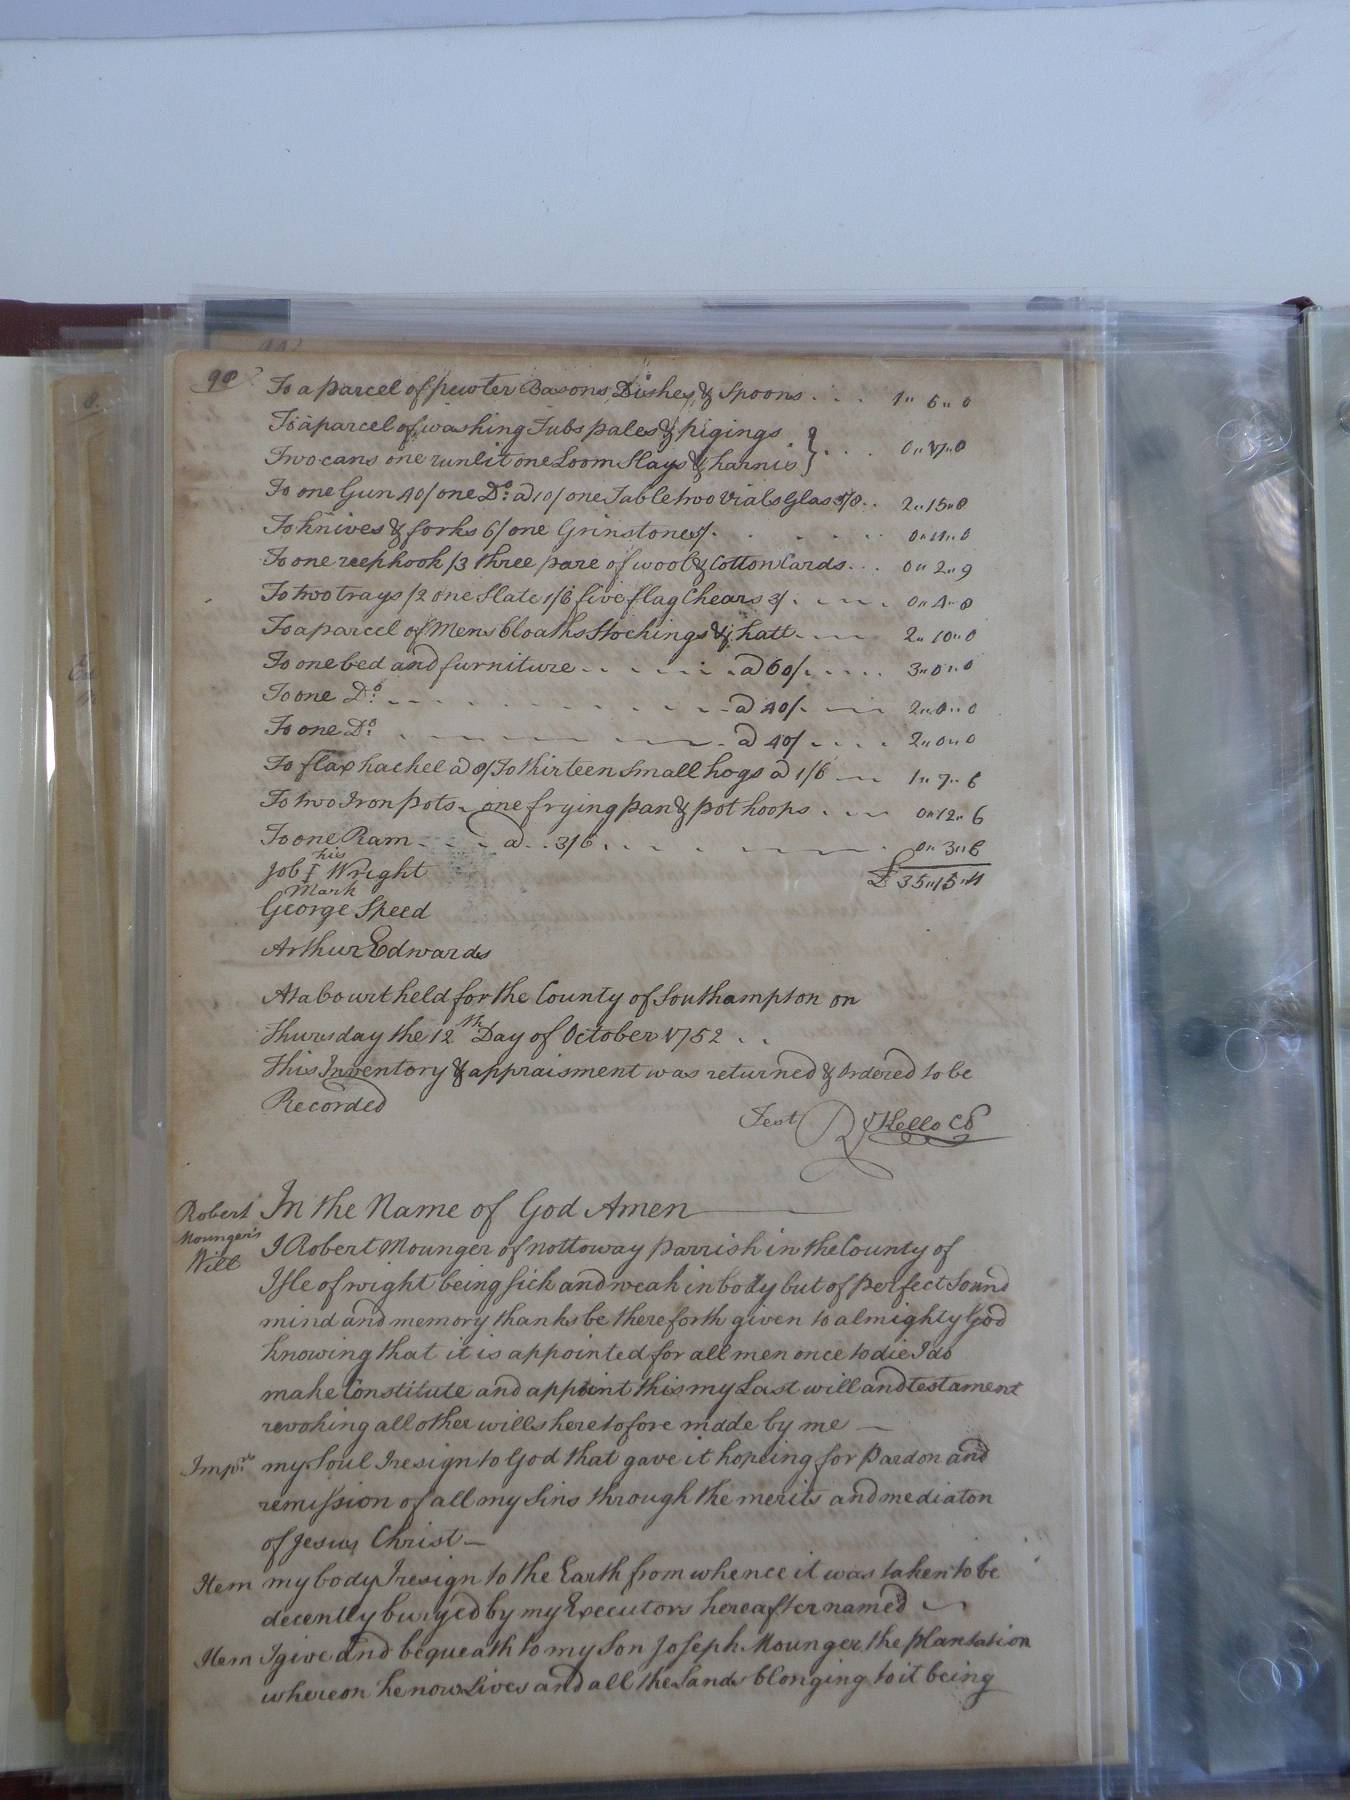 98
To a parcel of pewter Basons, Dishes & Spoons . . . 1" 6" 0
To a parcel of washing Tubs pales & pigings
Two cans one runlit one Loom Slays & harnis } . . . 0" 17" 0
To one Gun 40/ one Do: a 10/ one Table two vials Glas . . 2" 15" 8
To knives & forks 6/ one Grinstone 5/ . . . . . 0" 11" 0
To one reephook /3 three pare of wool & Cotton Cards . . . 0" 2" 9
To two trays /2 one Slate 1/6 five flag Chears 3/ . . . . 0" 4" 8
To a parcel of Mens Cloaths Stockings & hatt . . . . 2" 10" 0
To one bed and furniture . . . . . . a 60/ . . . . 3" 0" 0
To one Do: . . . . . . . . . a 40/ . . . 2" 0" 0
To one Do: . . . . . . . . . a 40/ . . . . 2" 0" 0
To flax hachel a 8/ To thirteen small hogs a 1/6 . . . 1" 7" 6
To two Iron pots, one frying pan & pot hoops . . . . 0" 12" 6
To one Ram . . . a . . 3/6 . . . . . . 0" 3" 6
Job his Wright £ 35" 15" 4
Mark
George Speed
Arthur Edwards
At a Court held for the County of Southampton on
Thursday the 12th Day of October 1752 . .
This Inventory & appraisment was returned & Ordered to be
Recorded
Test R Kello Cl
Robert In the Name of God Amen
Mounger's
Will
I Robert Mounger of Nottoway parrish in the County of
Isle of wight being sick and weak in body but of perfect Sound
mind and memory thanks be there forth given to almighty God
knowing that it is appointed for all men once to die I do
make Constitute and appoint this my Last will and testament
revoking all other wills heretofore made by me —
Imprs my Soul I resign to God that gave it hopeing for Pardon and
remission of all my Sins through the merits and mediaton
of Jesus Christ —
Item my body I resign to the Earth from whence it was taken to be
decently buryed by my Executors hereafter named
Item I give and bequeath to my Son Joseph Mounger the plantation
whereon he now Lives and all the Lands blonging to it being